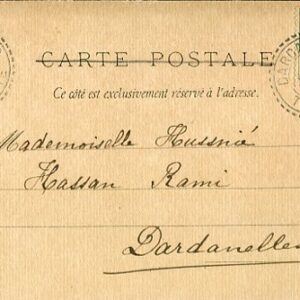 CARTE POSTALE
Ce côté est exclusivement réservé à l'adresse.
Mademoiselle Hussnié
Hassan Rami
Dardanelles